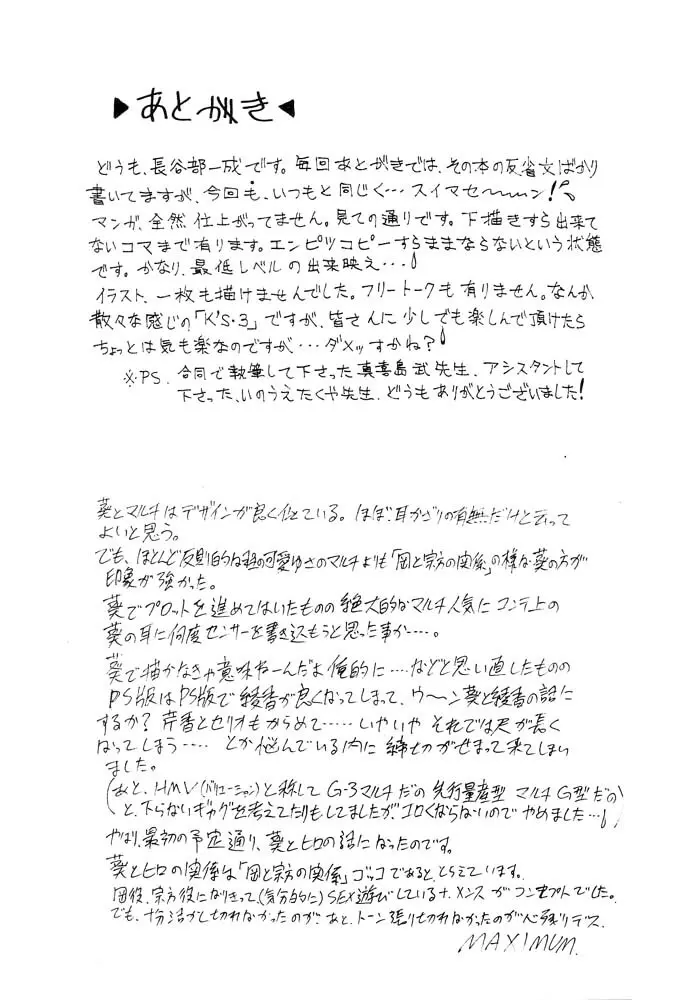 ▶あとがき◀
どうも、長谷部一成です。毎回あとがきでは、その本の反省文ばかり
書いてますが、今回も、いつもと同じく…スイマセ〜〜ン!
マンガ、全然仕上がってません。見ての通りです。下描きすら出来て
ないコマまで有ります。エンピツコピーすらままならないという状態
です。かなり、最低レベルの出来映え…!
イラスト、一枚も描けませんでした。フリートークも有りません。なんか、
散々な感じの「K'S・3」ですが、皆さんに少しでも楽しんで頂けたら
ちょっとは気も楽なのですが…ダメッすかね?!
※PS. 合同で執筆して下さった真喜島武先生、アシスタントして
下さった、いのうえたくや先生、どうもありがとうございました!
葵とマルチはデザインが良く似ている。ほぼ、耳かざりの有無だけと云って
よいと思う。
でも、ほとんど反則的な程の可愛ゆさのマルチよりも「岡と宗方の関係」の様な葵の方が
印象が強かった。
葵でプロットを進めてはいたものの絶大的なマルチ人気にコンテ上の
葵の耳に何度センサーを書き込もうと思った事か…。
葵で描かなきゃ意味ねーんだよ俺的に…などと思い直したものの
PS版はPS版で綾香が良くなってしまって、ウ〜ン葵と綾香の話に
するか? 芹香とセリオもからめて……いやいや それでは尺が長く
なってしまう…… とか悩んでいる内に締め切がせまって来てしまい
ました。
(あと、HMV(バリエーション)と称して G-3マルチだの 先行量産型 マルチG型だの
と、下らないギャグを考えてたりもしてましたがゴロくならないのでやめました…)
やはり、最初の予定通り、葵とヒロの話になったのです。
葵とヒロの関係は「岡と宗方の関係」ゴッコであると、とらえています。
岡役、宗方役になりきって(気分的に)SEX遊びしている 十、メンス がコンセプトでした。
でも、十分活かし切れなかったのが、あと、トーン張り切れなかったのが心残りデス。
MAXIMUM.